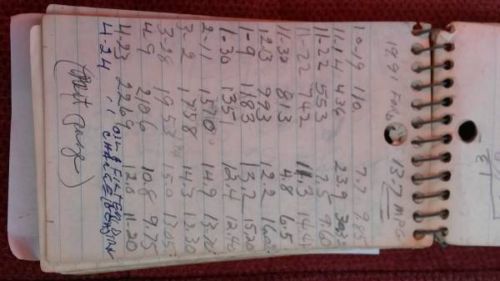 1991 Ford 13.7 MPG
10-19 110. 7.7 9.85
11-14 436 23.9
11-22 553 7.5 9.60
11-22 742 11.3
11-30 813 4.8 6.5
12-3 993 12.2 16.00
1-9 1183 13.2 15.20
1-30 1354 12.40
2-11 1570 14.9 13.20
3-2 1758 14.3 13.30
3-28 1953 15.0 13.05
4-9 2106 10.8 9.75
4-23 2269 12.8 11.20
4-24 oil & filter
(next page)